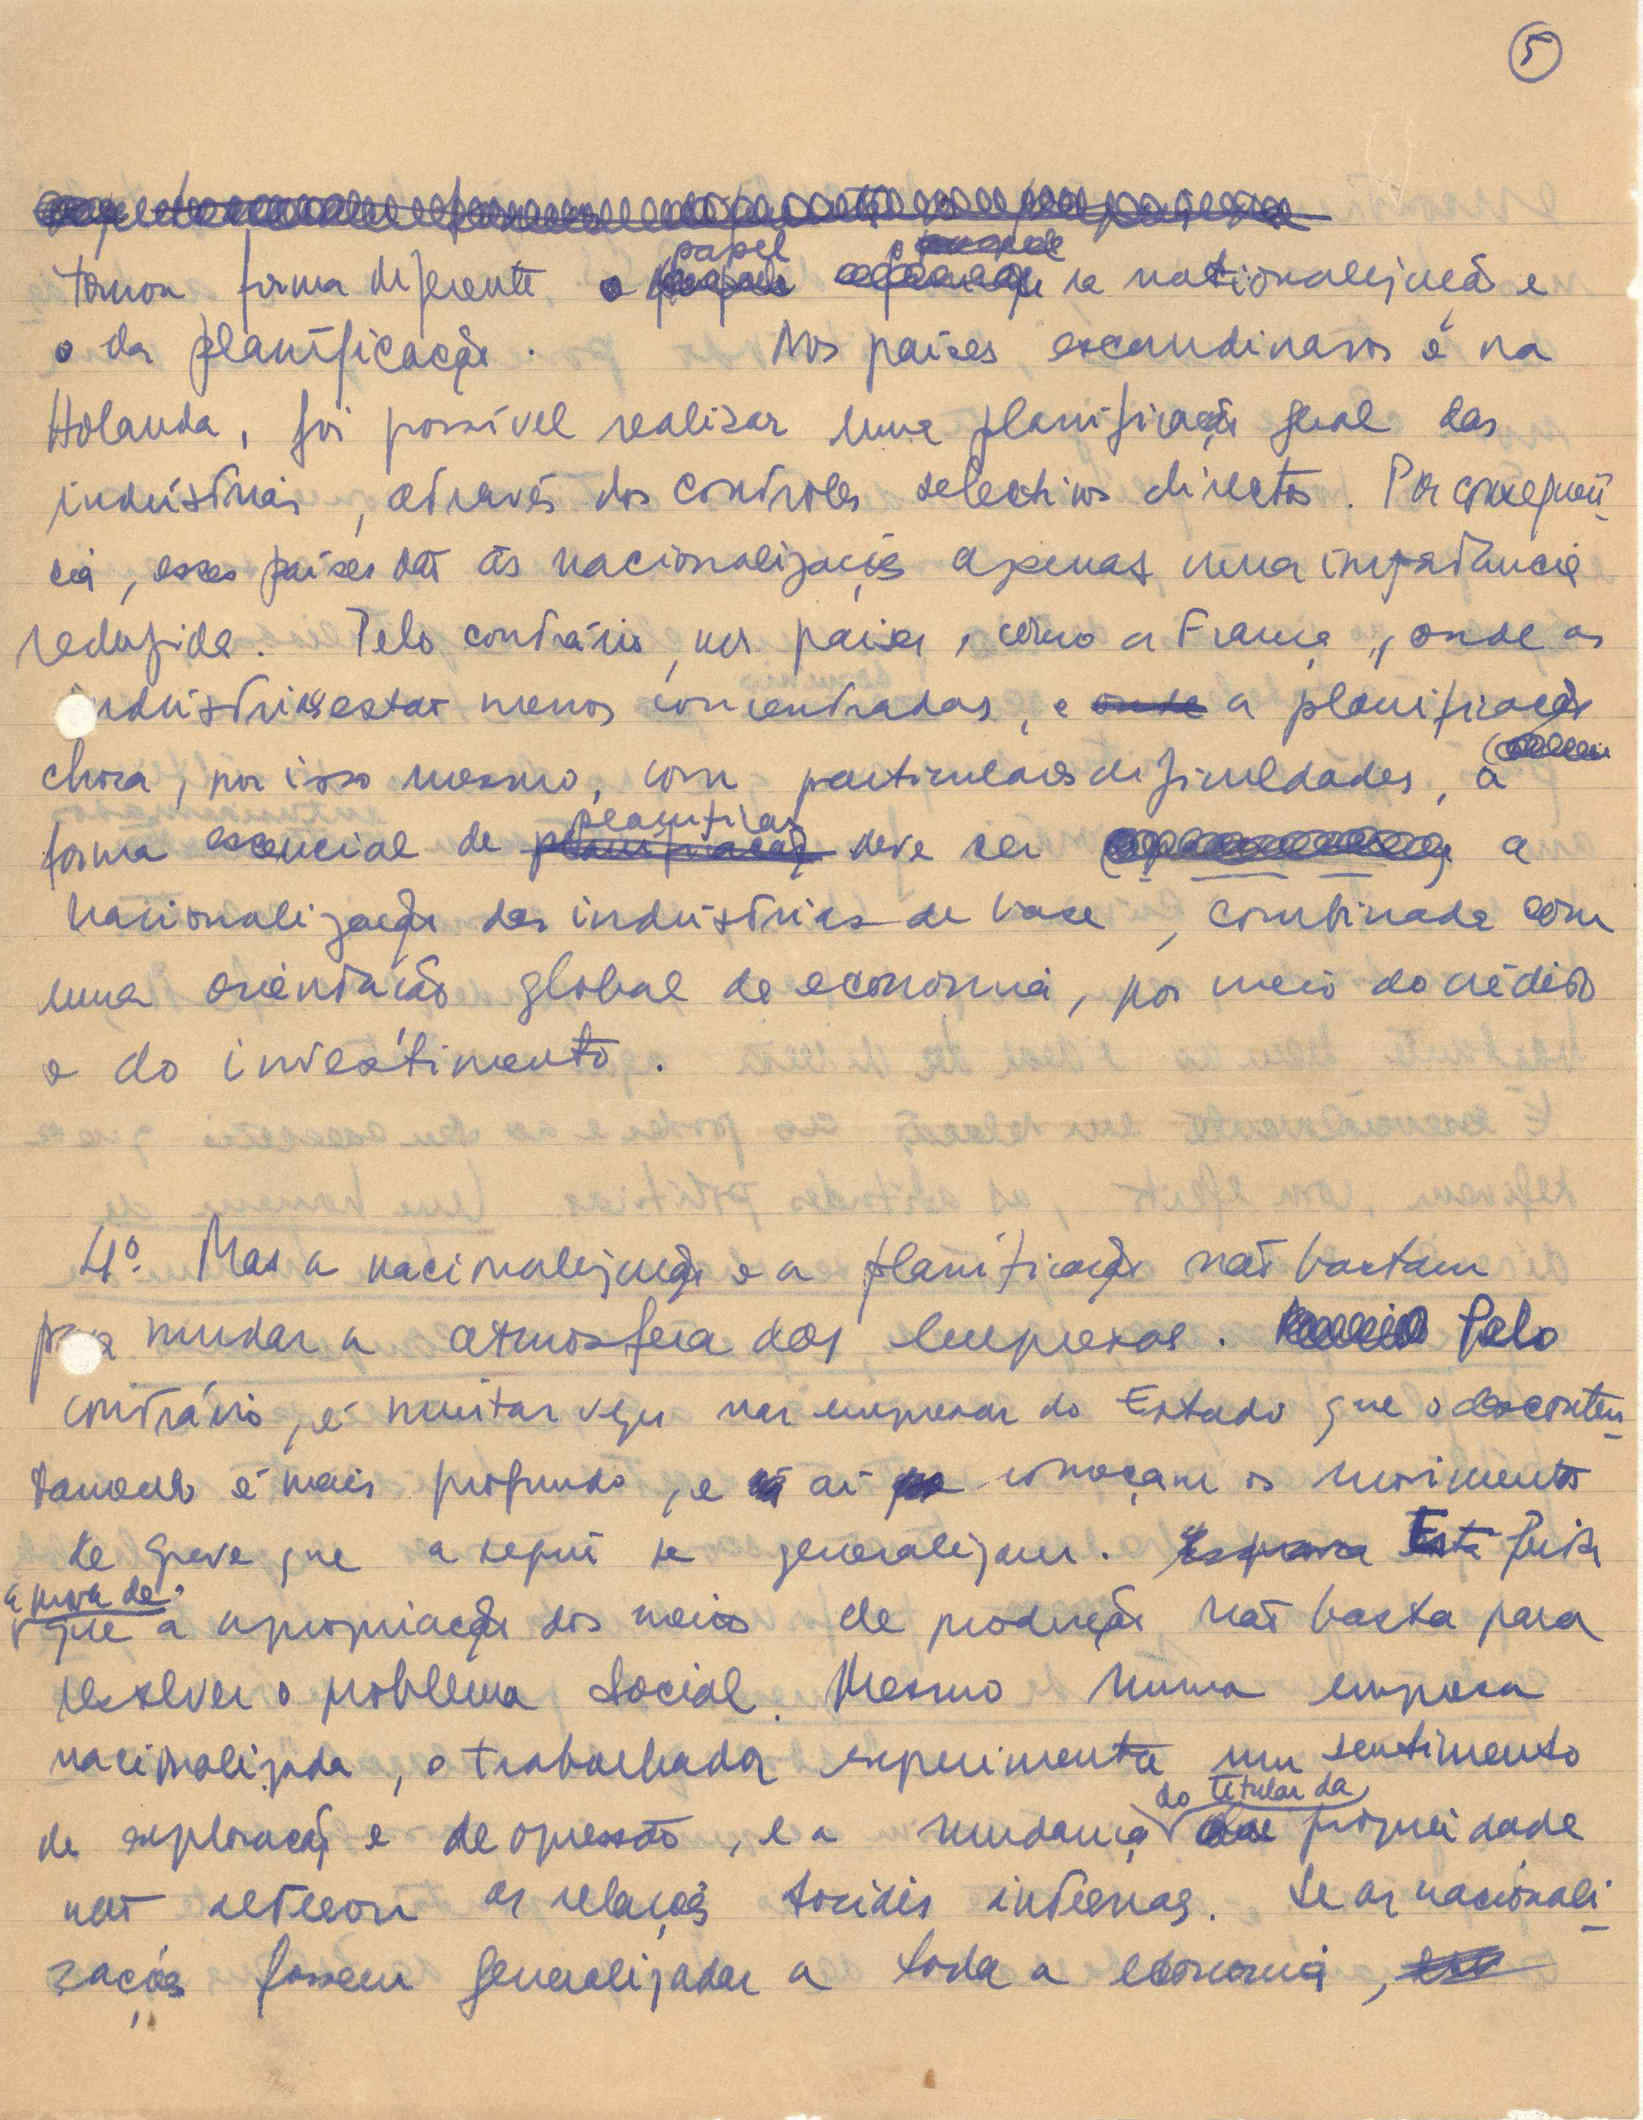 5
papel
tomou forma diferente o da nationalização e
o da planificação. Nos países escandinavos e na
Holanda, foi possível realizar uma planificação geral das
indústrias, através dos controles selectivos directos. Por consequên-
cia, esses países dão às nacionalizações apenas uma importância
reduzida. Pelo contrário, nos países, como a França, onde as
indústrias estão menos concentradas, e onde a planificação
choca, por isso mesmo, com particulares dificuldades, a
planificar
forma essencial de planificação deve ser a
nacionalização das indústrias de base, combinada com
uma orientação global da economia, por meio do crédito
e do investimento.
4º. Mas a nacionalização e a planificação não bastam
para mudar a atmosfera das empresas. Pelo
contrário, é muitas vezes nas empresas do Estado que o desconten-
tamento é mais profundo, e aí começam os movimentos
de greve que a seguir se generalizam. Está feita
a prova de
que a apropriação dos meios de produção não basta para
resolver o problema social. Mesmo numa empresa
nacionalizada, o trabalhador experimenta um sentimento
do titular da
de exploração e de opressão, e a mudança propriedade
não alterou as relações sociais internas. Se as nacionali-
zações fossem generalizadas a toda a economia,